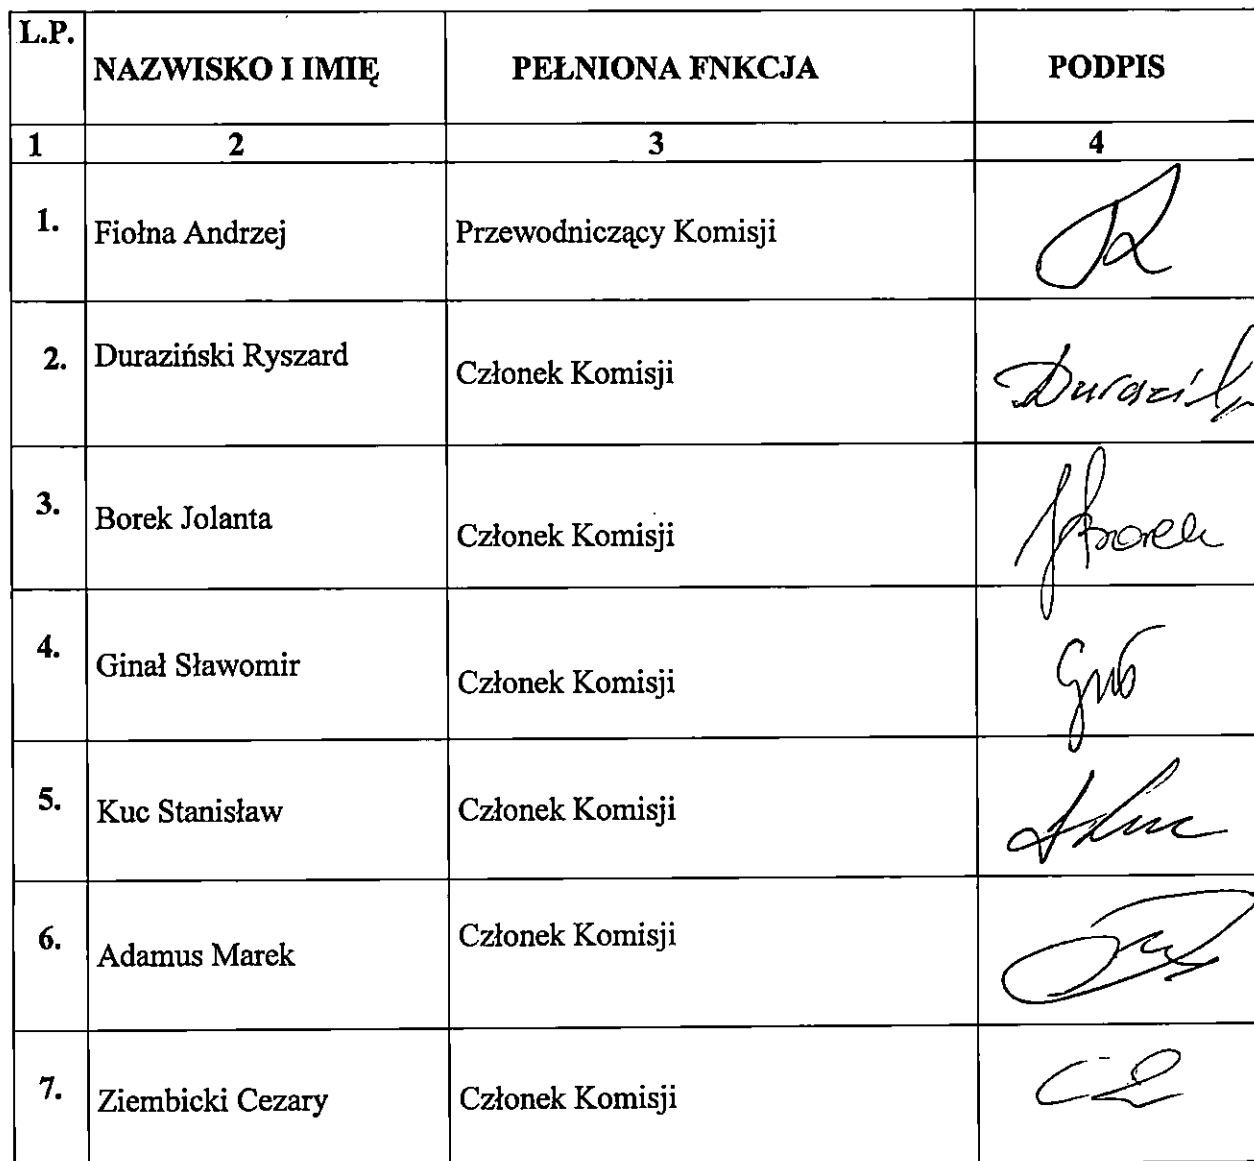 L.P. NAZWISKO I IMIĘ PEŁNIONA FNKCJA PODPIS
1 2 3 4
1. Fiołna Andrzej Przewodniczący Komisji
2. Duraziński Ryszard Członek Komisji
3. Borek Jolanta Członek Komisji JBorek
4. Ginał Sławomir Członek Komisji
5. Kuc Stanisław Członek Komisji SKuc
6. Adamus Marek Członek Komisji
7. Ziembicki Cezary Członek Komisji